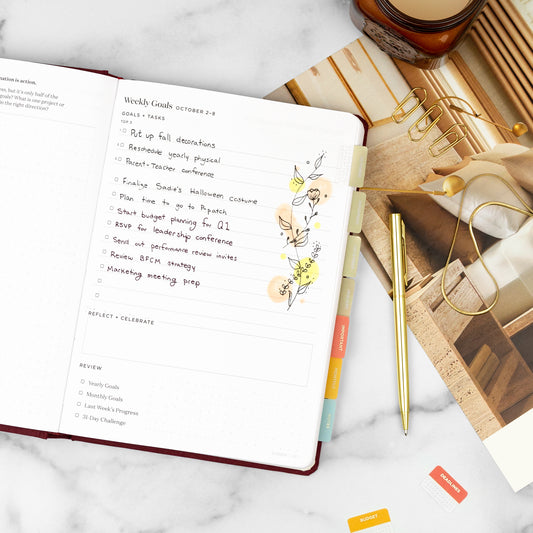 nation is action.
but it's only half of the
goals? What is one project or
the right direction?
Weekly Goals OCTOBER 2-8
GOALS + TASKS
TOP 3
Put up fall decorations
Reschedule yearly physical
Parent-Teacher conference
Finalize Sadie's Halloween costume
Plan time to go to P.patch
Start budget planning for Q1
RSVP for leadership conference
Send out performance review invites
Review BFCM strategy
Marketing meeting prep
REFLECT + CELEBRATE
REVIEW
Yearly Goals
Monthly Goals
Last Week's Progress
31-Day Challenge
IMPORTANT
DEADLINES
BUDGET